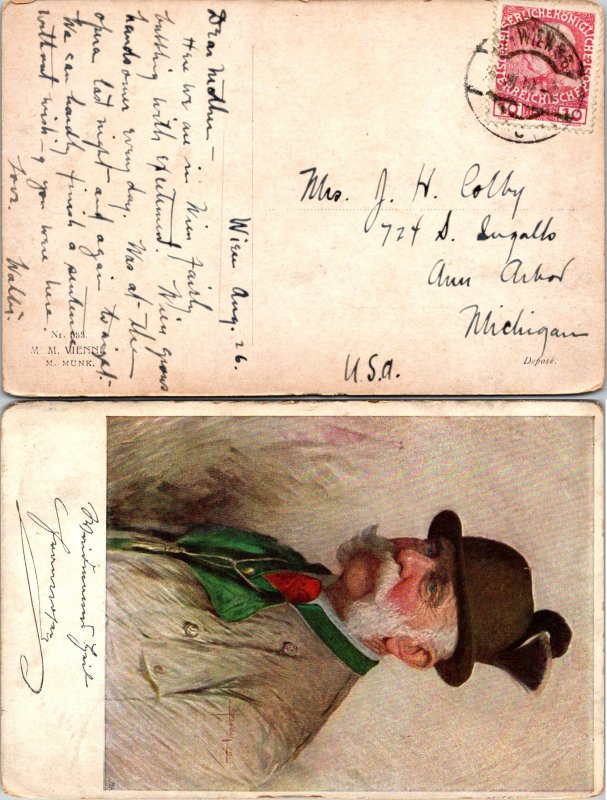 Wien Aug. 26.
Dear Mother –
Here we are in Wien fairly
bubbling with excitement. Wien grows
handsomer every day. Was at the
opera last night and again tonight.
We can hardly finish a sentence
without wish-g you were here.
Love.
Mrs. J. H. Colby
724 S. Ingalls
Ann Arbor
Michigan
U.S.A.
KAISERLICHE KÖNIGLICHE
ÖSTERREICHISCHE
10 10
WIEN
M. M. VIENNE
M. MUNK.
Déposé.